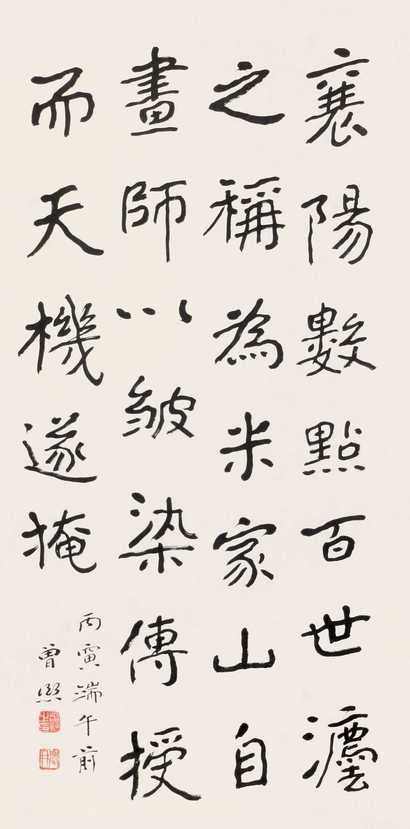 襄陽數點百世灋
之稱為米家山自
畫師以皺染傳授
而天機遂掩
丙寅端午前
曾熙